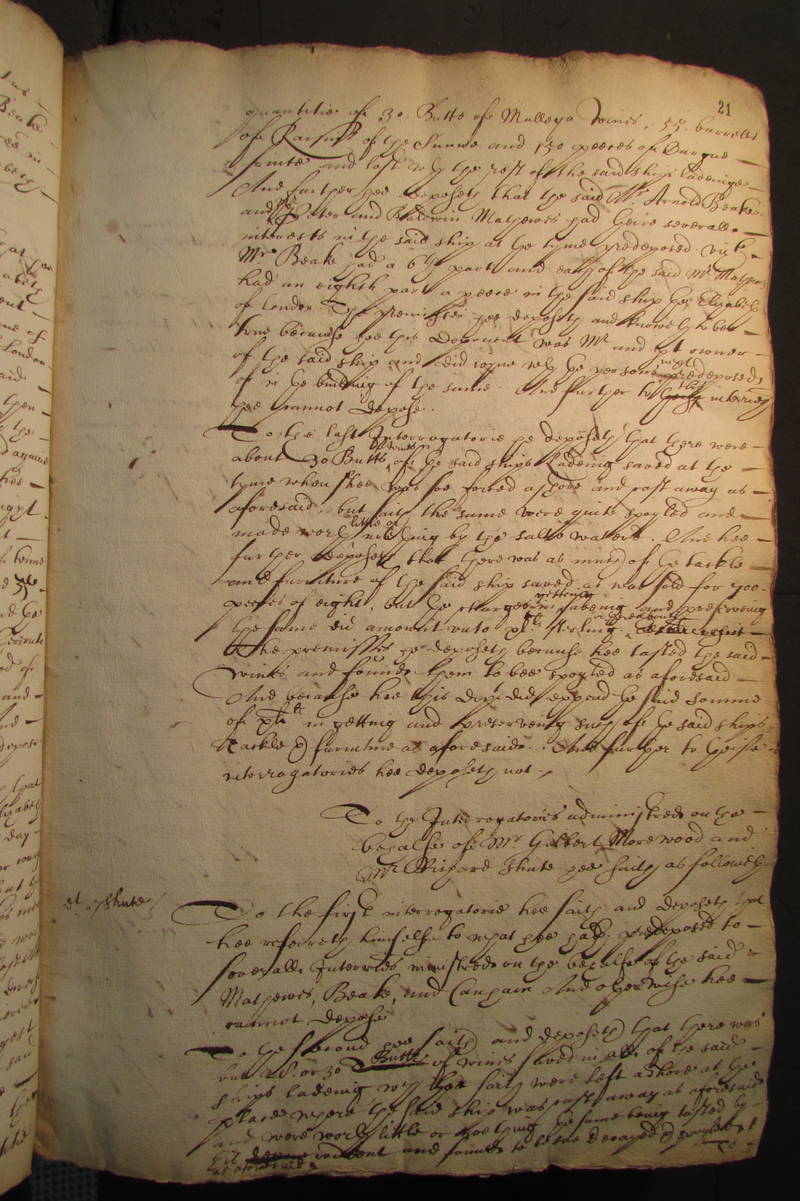 21
quantitie of 30 Butts of Mallega wines, 55 barrells
of Raisins of the Sunne and 130 peeces of
and lost with the rest of the said ships ladeinge
And further hee deposeth that the said Mr Arnold Beake
and Mr Peter and Baldwin Mathewes had theire severall
interests in the said ship at the tyme predeposed. vizt
Mr Beake had a 6th part and each of the said Mr Mathews
had an eighth part a peece in the said ship the Elizabeth
of London The premisses hee deposeth and knoweth to bee
true because hee this deponent was Mr and pt owner
of the said ship and did ioyne with the persons predeposed
in the building of the same. And further to this interrie
hee cannot depose.
To the last Interrogatorie he deposeth that there were
about 30 Butts of wines of the said ships ladeing saved at the
tyme when shee was soe forced ashore and cast away as
aforesaid, but saith the same were quite spoyled and
made worth little or nothing by the salt water. And hee
further deposeth that there was as much of the tackle
and furniture of the said ship saved as was sold for 400
peeces of eight, but the charges in getting saveing and preserving
the same did amount unto sterling
The premisses he deposeth because hee tasted the said
wines and found them to bee spoyled as aforesaid
And because hee this dept did expend the said somme
of in getting and preserveing such of the said ships
tackle & furniture as aforesaide. And further to theise
interrogatories hee deposeth not.
To the Interrogatories administred on the
behalfe of Mr Gilbert Morewood and
Mr Richard Shute hee saith as followeth
et Shute
To the first interrogatorie hee saith and deposeth that
hee referreth himselfe to what hee hath predeposed to
severall Interries ministred on the behalfe of the said
Mathewes, Beake, and Canham And otherwise hee
cannot depose
To the second hee saith and deposeth that there was
but 28 or 30 Butts of wines saved in all of the said
ships ladeing which hee saith were left ashore at the
place where the said ship was cast away as aforesaid
and were worth little or nothing the same being tasted by
this rendent and found to bee decayed & spoyled
as aforesaid